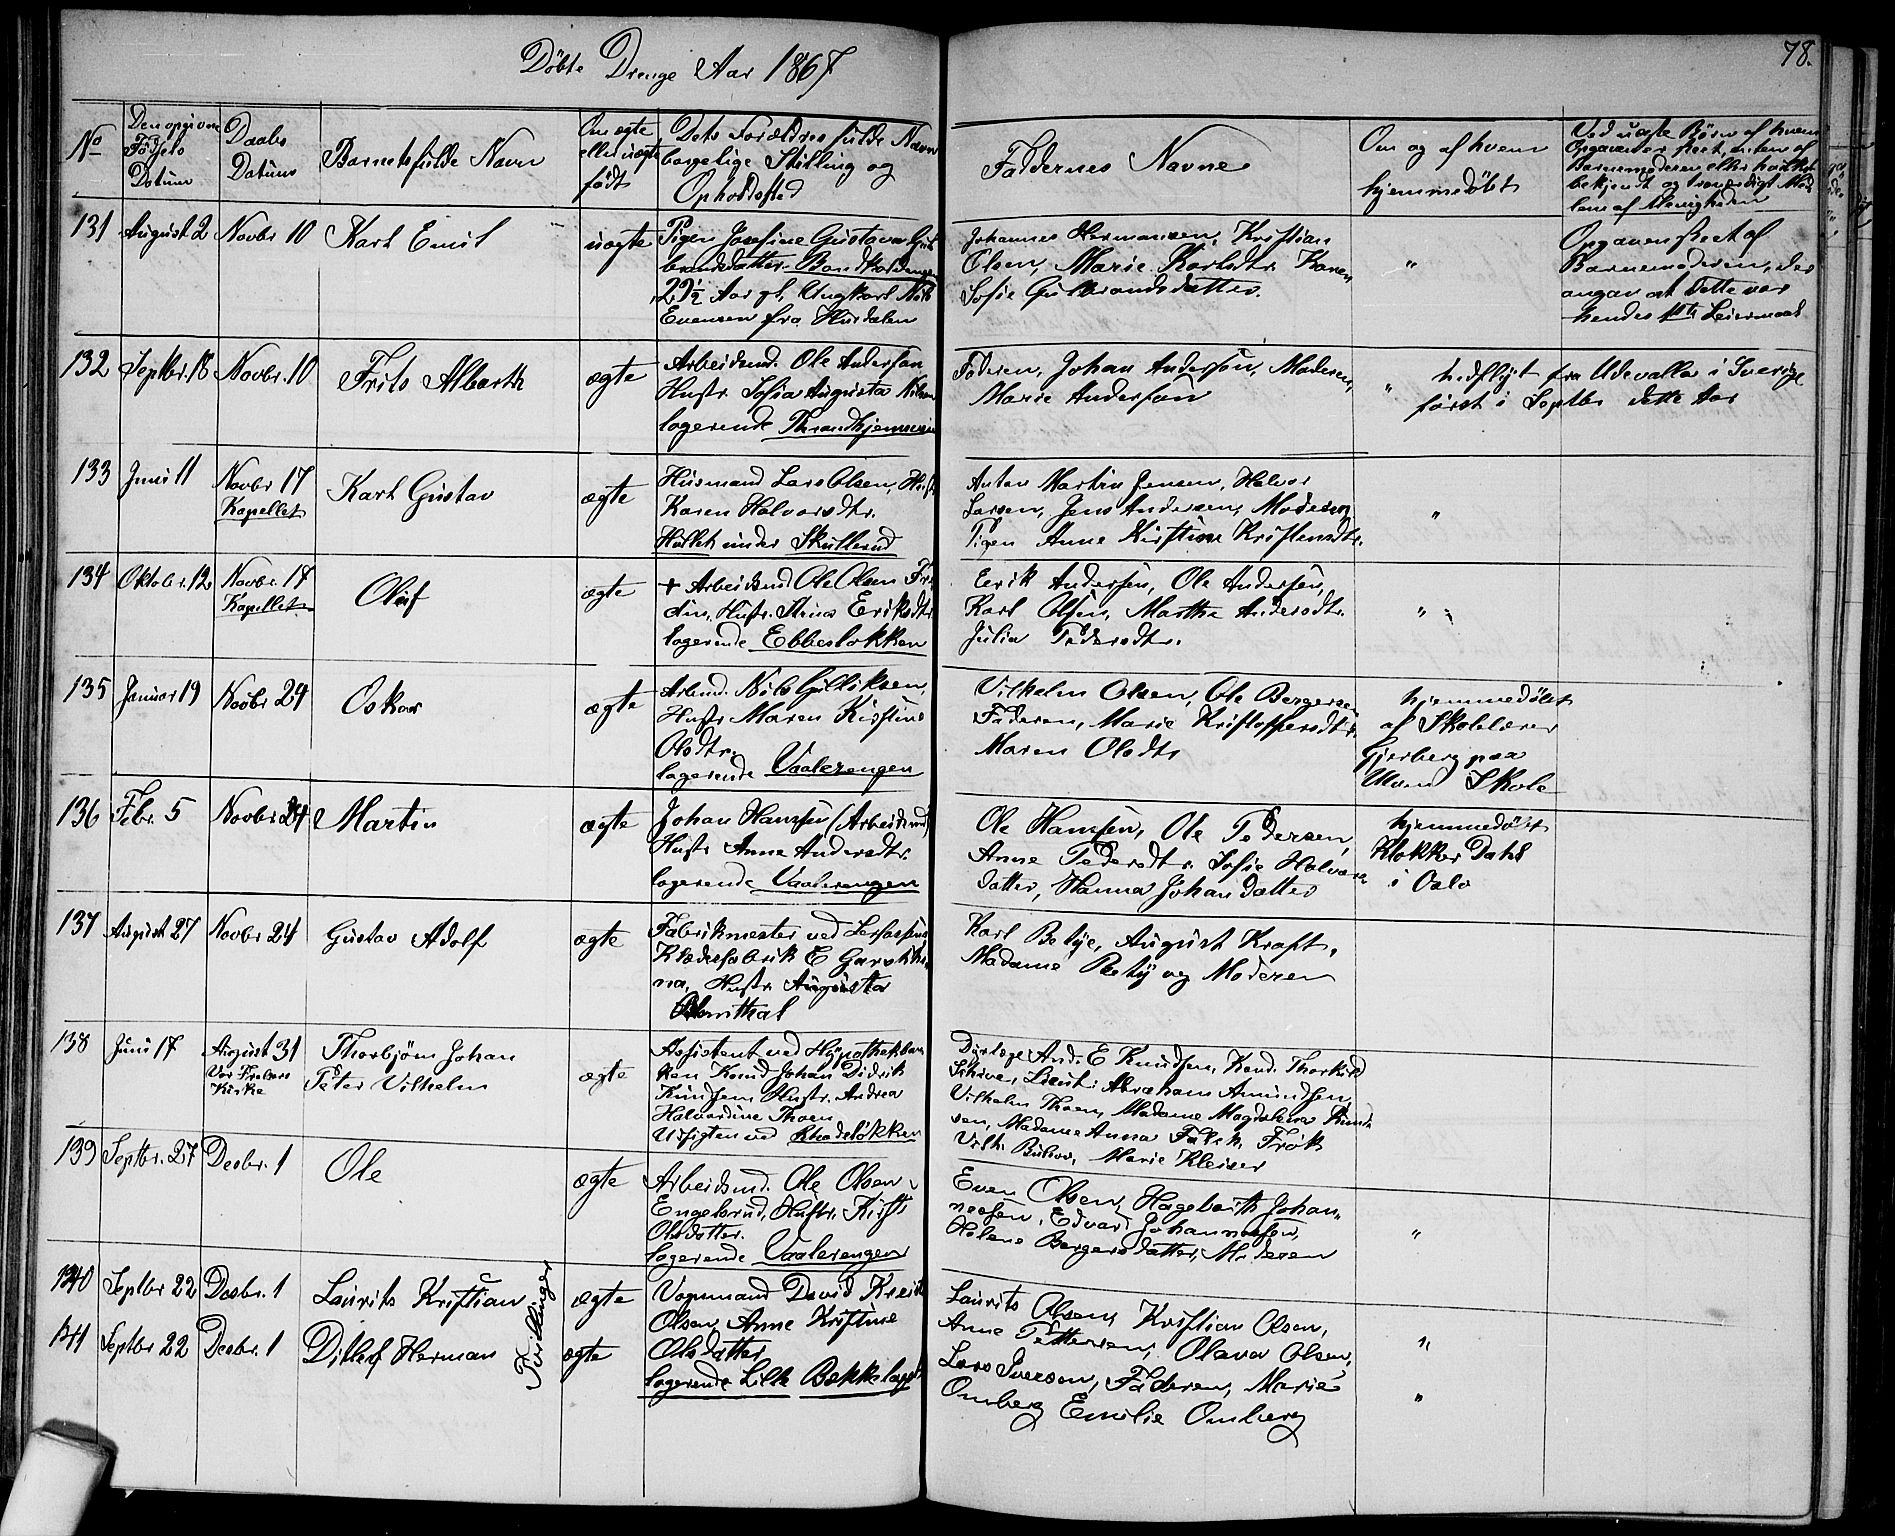 Döbte Drenge Aar 1867
78.
No
Den opgivne
Födsels
Datum
Daabs
Datum
Barnets fulde Navn
Om ægte
eller uægte
født
Dets Forældres fulde Navn
borgelige Stilling og
Opholdssted
Faddernes Navne
Om og af hvem
hjemmedøbt
Ved uægte Börn af hvem
Opgaven er skeet, enten af
Barnemoderen eller
bekjendt og troværdigt Med
lem af Menigheden
131 August 2 Novbr 10 Karl Emil uægte
Pigen Josefine Gustava Gul
brandsdatter
22½ Aar gl, Ungkarl
Evensen fra Hurdalen
Johannes Hermansen, Kristian
Olsen, Marie Karlsdtr. Karen,
Sofie Gulbrandsdatter.
"
Opgaven skeet af
Barnemoderen, der
angav at dette var
hendes 1ste Leiermaal
132 Septbr. 18 Novbr. 10 Frits Alberth ægte
Arbeidsmd. Ole Anderson
Hustr. Sofia Augusta
logerende Throndhjemsveien
Faderen, Johan Anderson, Moderen,
Marie Anderson
" hidflyt fra Udevalla i Sverige
først i Septbr dette Aar
133 Juni 11 Novbr 17
Kapellet
Karl Gustav ægte
Husmand Lars Olsen, Hustr
Karen Halvorsdtr.
Hullet under Skullerud
Anton Martin Jensen, Halvor
Larsen, Jens Andersen, Moderen
Pigen Anne Kirstine Kristensdtr.
"
134 Oktobr. 12 Novbr. 17
Kapellet
Oluf ægte
+ Arbeidsmd Ole Olsen
Hustr. Stina Eriksdtr
logerende Ebbesløkken
Eerik Andersen, Ole Andersen,
Karl Olsen, Marthe Andersdtr.
Julia Pedersdtr.
"
135 Januar 19 Novbr 24 Oskar ægte
Arbmd. Nils Gulliksen,
Hustr Maren Kirstine
Olsdtr.
logerende Vaalerengen
Vilhelm Olsen, Ole Bergersen
Faderen, Marie Kristoffersdtr.
Maren Olsdtr
hjemmedøbt
af Skolelærer
Gjerberg paa
Skole
136 Febr. 5 Novbr 24 Martin ægte
Johan Hansen (Arbeidsmd)
Hustr Anne Andersdtr.
logerende Vaalerengen
Ole Hansen, Ole Pedersen,
Anne Pedersdtr. Sofie Halvors
datter, Hanna Johansdatter
hjemmedøbt
Klokker Dahl
i Oslo
137 August 27 Novbr 24 Gustav Adolf ægte
Fabrikmester ved
Klædesfabrik E
na, Hustr. Augusta
Karl Betye, August Kraft,
Madame Betÿ og Moderen
138 Juni 17 August 31
Vor Frelsers
Kirke
Thorbjørn Johan
Peter Vilhelm
ægte
Assistent ved Hypothekban
ken Knud Johan Didrik
Knudsen Hustr. Andrea
Halvardine Thoen
Udsigten ved Rhodeløkken
Dyrlæge And. E Knudsen, Kand. Thorkild
Lieut: Abraham Amundsen,
Vilhelm Thoen, Madame Magdalena Knud
sen, Madame Anna Falck, Frøk
Vilh. Marie Kleiser
139 Septbr. 27 Decbr. 1 Ole ægte
Arbeidsmd. Ole Olsen
Engebrud, Hustr. Kirsti
Olsdatter.
logerende Vaalerengen
Even Olsen, Hagbarth Johan
nessen, Edvard Johannessen,
Helene Bergersdatter, Moderen
"
140 Septbr 22 Decbr. 1 Laurits Kristian ægte
141 Septbr 22 Decbr. 1 Ditlef Herman ægte
Tvillinger
Vognmand David
Olsen, Anne Kristine
Olsdatter
logerende Lille Bækkelaget
Laurits Olsen, Kristian Olsen,
Anne Pettersen, Olava Olsen,
Lars Iversen, Faderen, Marie
Omberg Emilie Omberg
"
"